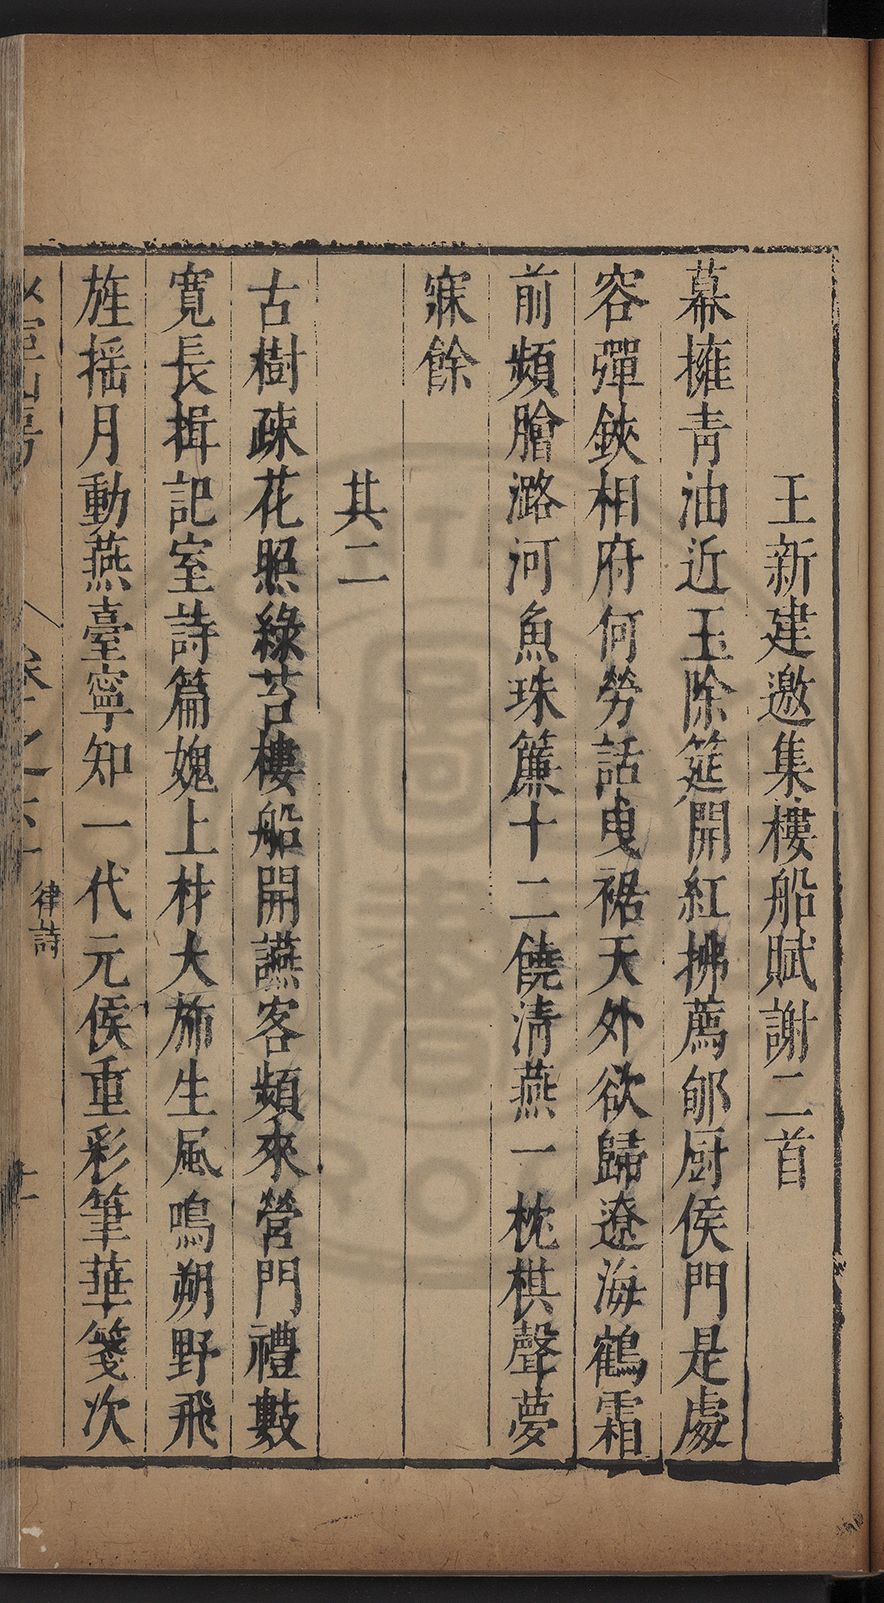 王新建邀集樓船賦謝二首
幕擁青油近玉除筵開紅拂薦郇厨侯門是處
容彈鋏相府何勞話曳裾天外欲歸遼海鶴霜
前頻膾潞河魚珠簾十二饒清燕一枕棋聲夢
寐餘
其二
古樹疎花照綠苔樓船開讌客頻來營門禮數
寬長揖記室詩篇媿上才大斾生風鳴朔野飛
旌搖月動燕臺寧知一代元侯重彩筆華箋次
律詩